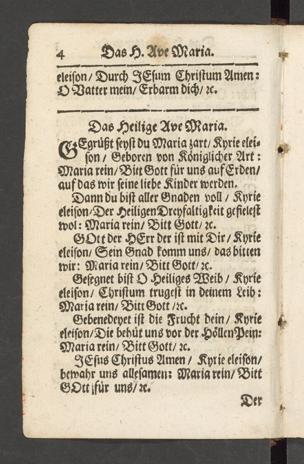 4 Das H. Ave Maria.
eleison/ Durch JEsum Christum Amen:
O Vatter mein/ Erbarm dich/ ꝛc.
Das Heilige Ave Maria.
GEgrüßt seyst du Maria zart/ Kyrie elei-
son/ Geboren von Königlicher Art:
Maria rein/ Bitt Gott für uns auf Erden/
auf das wir seine liebe Kinder werden.
Dann du bist aller Gnaden voll/ Kyrie
eleison/ Der Heiligen Dreyfaltigkeit gefielest
wol: Maria rein/ Bitt Gott/ ꝛc.
GOtt der HErr der ist mit Dir/ Kyrie
eleison/ Sein Gnad komm uns/ das bitten
wir: Maria rein/ Bitt Gott/ ꝛc.
Gesegnet bist O Heiliges Weib/ Kyrie
eleison/ Christum trugest in deinem Leib:
Maria rein/ Bitt Gott/ ꝛc.
Gebenedeyet ist die Frucht dein/ Kyrie
eleison/ Die behüt uns vor der Höllen Pein:
Maria rein/ Bitt Gott/ ꝛc.
JEsus Christus Amen/ Kyrie eleison/
bewahr uns allesamen: Maria rein/ Bitt
GOtt für uns/ ꝛc.
Der